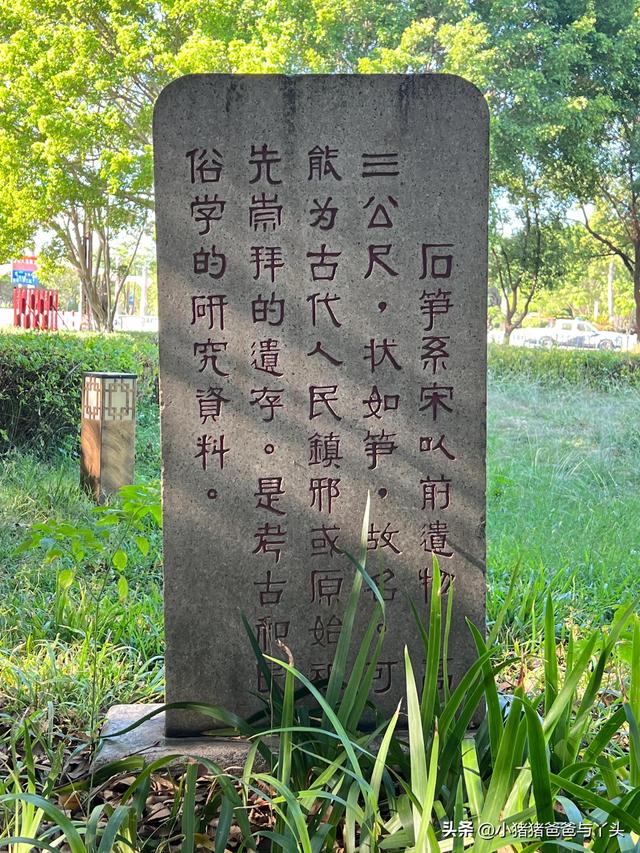 石笋系宋以前遺物，高
三公尺，状如笋，故名。可
能为古代人民鎮邪或原始祖
先崇拜的遺存。是考古和民
俗学的研究資料。
头条 @小猪猪爸爸与丫头